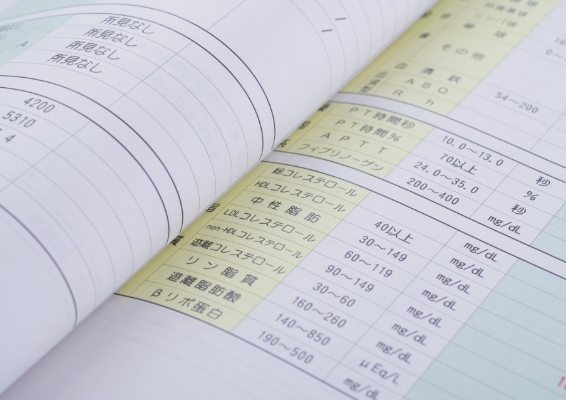 所見なし
所見なし
所見なし
所見なし
A
4200
5310
リンパ球
単球
その他
血清鉄 54~200
ABO
Rh
PT時間秒 10.0~13.0 秒
PT時間% 70以上 %
APTT 24.0~35.0 秒
フィブリノーゲン 200~400 mg/dL
総コレステロール
HDLコレステロール 40以上 mg/dL
中性脂肪 30~149 mg/dL
LDLコレステロール 60~119 mg/dL
non-HDLコレステロール 90~149 mg/dL
遊離コレステロール 30~60 mg/dL
リン脂質 160~260 mg/dL
遊離脂肪酸 140~850 μEq/L
βリポ蛋白 190~500 mg/dL